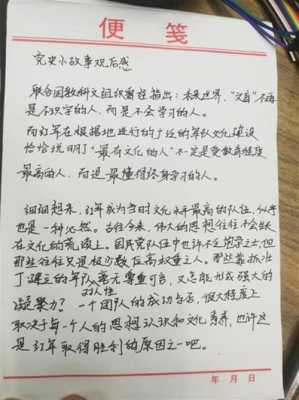 便 笺
党史小故事观后感
联合国教科文组织曾经指出：未来世界，“文盲”不再
是不识字的人，而是不会学习的人。
而红军在根据地进行的广泛的军队文化建设
恰恰说明了“最有文化的人”不一定是受教育程度
最高的人，而还是最懂得终身学习的人。
细细想来，红军成为当时文化水平最高的队伍，似乎
也是一种必然。古往今来，伟大的思想往往不会驻足
在文化的荒漠上。国民党队伍中也许不乏饱学之士，但
那些往往只是极少数位高权重之人。那些靠抓壮
丁建立的军队，毫无尊重可言，又怎能形成强大的
对人性
凝聚力？一个团队的成功与否，很大程度上
取决于每一个人的思想认识和文化素养，也许这
是红军取得胜利的原因之一吧。
年 月 日